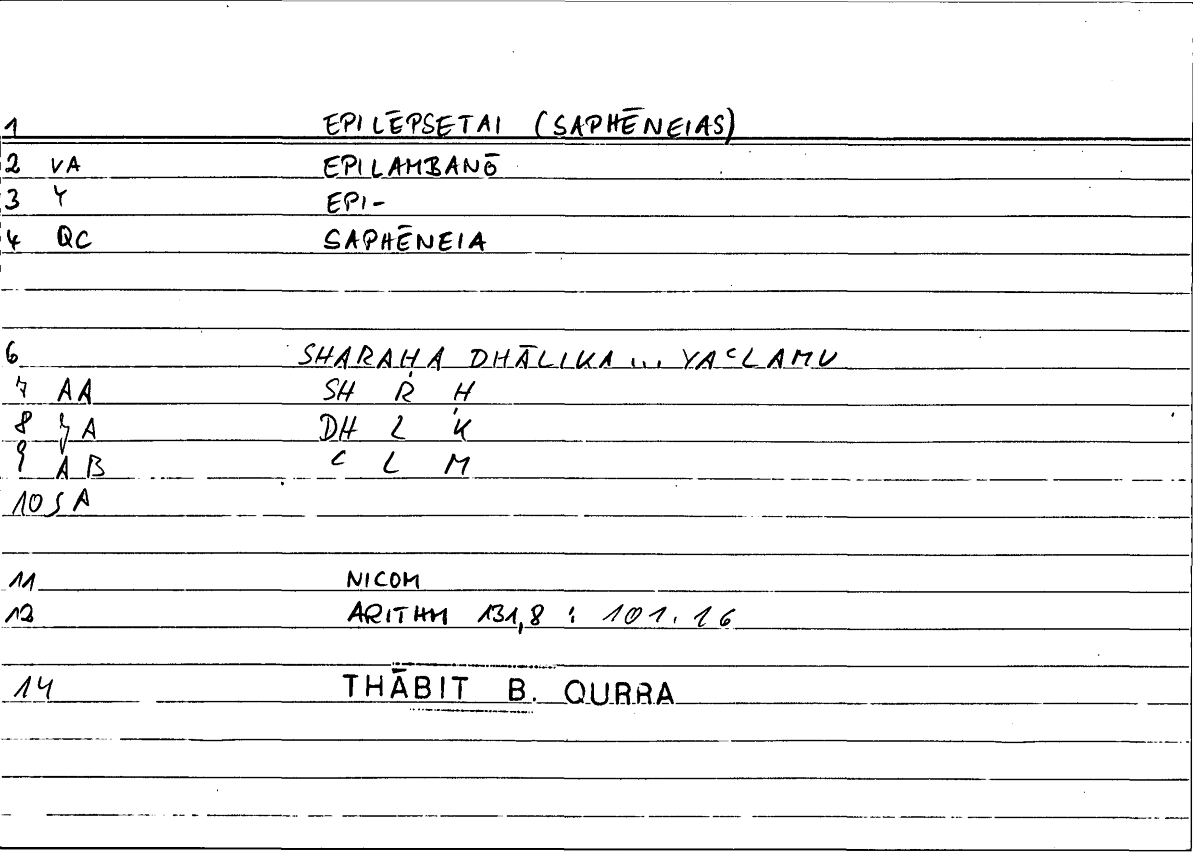 1 EPILĒPSETAI (SAPHĒNEIAS)
2 VA EPILAMBANŌ
3 Y EPI-
4 QC SAPHĒNEIA
6 SHARAḤA DHĀLIKA ... YAᶜLAMU
7 AA SH R Ḥ
8 ZA DH L K
9 AB ᶜ L M
10 SA
11 NICOM
12 ARITHM 131,8 : 101.16
14 THĀBIT B. QURRA